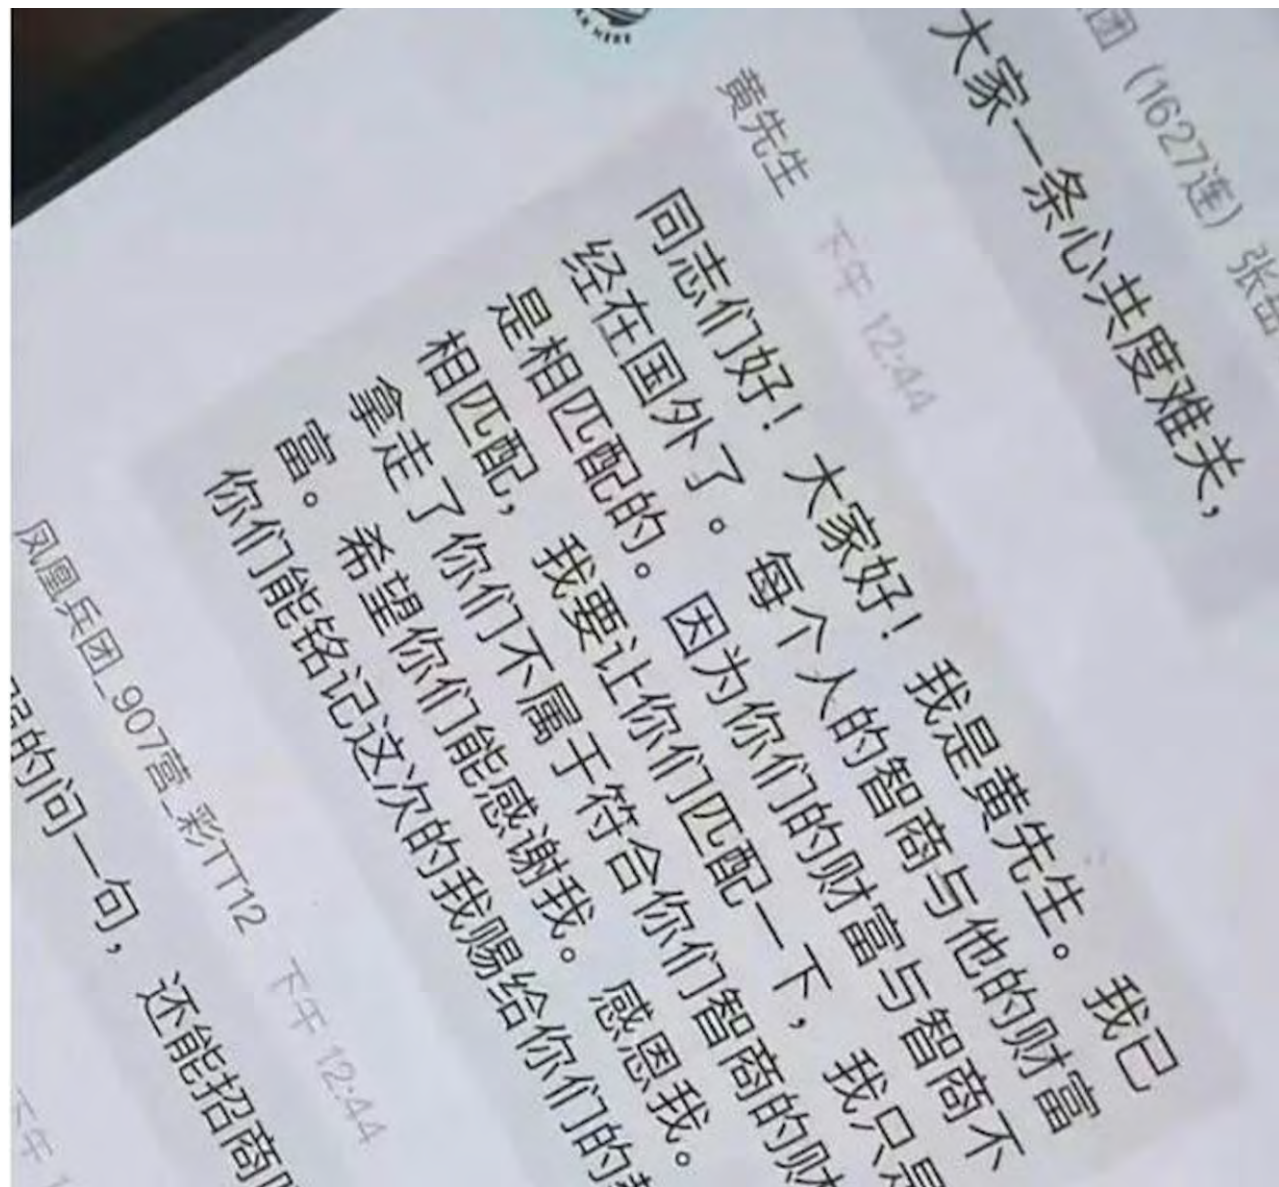 团（1627连）张岳
大家一条心共度难关，
黄先生 下午 12:44
同志们好！大家好！我是黄先生。我已
经在国外了。每个人的智商与他的财富
是相匹配的。因为你们的财富与智商不
相匹配，我要让你们匹配一下，我只是
拿走了你们不属于符合你们智商的财
富。希望你们能感谢我。感恩我。
你们能铭记这次的我赐给你们的
凤凰兵团_907营_彩TT12 下午 12:44
的问一句，还能招商
下午
HERE